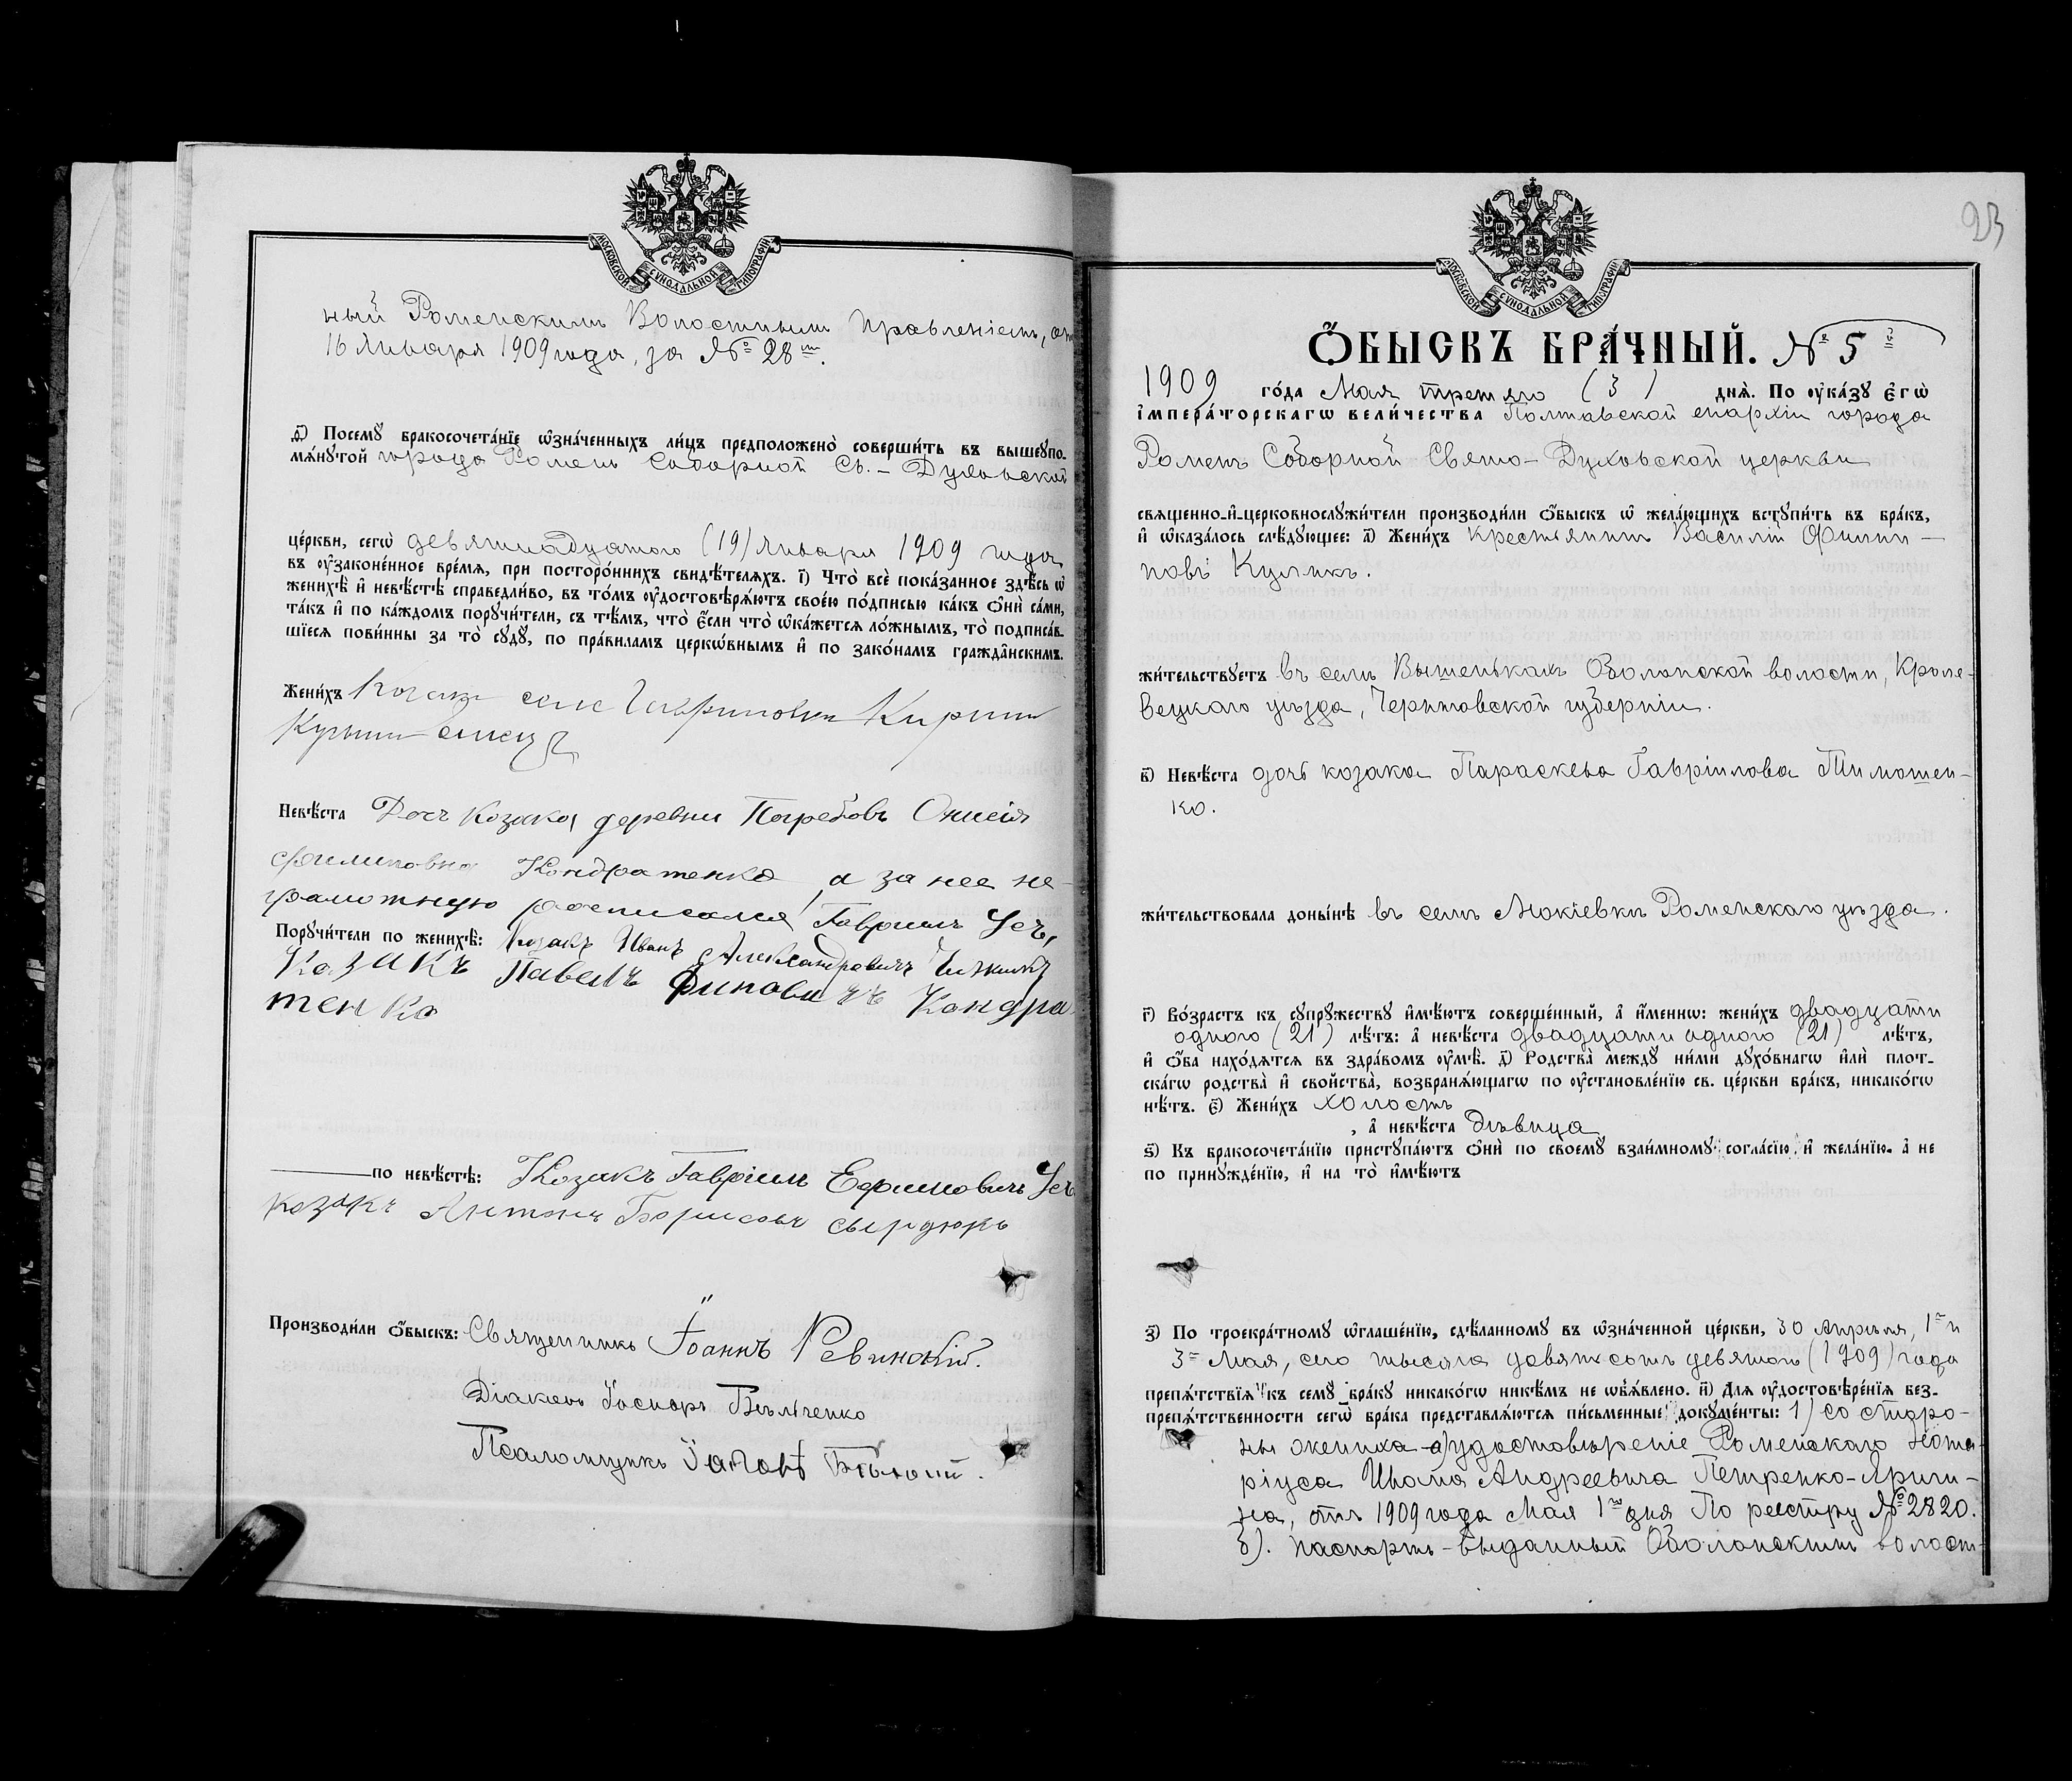 МОСКОВСКОЙ СѴНОДАЛЬНОЙ ТИПОГРАФІИ
ный Роменскимъ Волостнымъ Правленіемъ, отъ
16 Января 1909 года, за № 28 мъ.
д҃) Посемꙋ бракосочета́нїе ѡ҆зна́ченныхъ ли́цъ предположено̀ соверши́ть въ вышеꙋпо-
мѧ́нꙋтой города Роменъ Соборной Св.-Духовской
це́ркви, сегѡ̀ девятнадцатого (19) Января 1909 года
въ ᲂу҆зако́ненное вре́мѧ, при посторо́ннихъ свидѣ́телѧхъ. і҃) Что̀ всѐ пока́занное здѣ́сь ѡ҆
женихѣ̀ и҆ невѣ́стѣ справедли́во, въ то́мъ ᲂу҆достовѣрѧ́ютъ свое́ю по́дписью ка́къ ѻ҆нѝ са́ми,
та́къ и҆ по ка́ждомъ порꙋчи́тели, съ тѣ́мъ, что̀ є҆́сли что̀ ѡ҆ка́жетсѧ ло́жнымъ, то̀ подписа́в-
шїесѧ пови́нны за то̀ сꙋдꙋ̀, по пра́виламъ церкѡ́внымъ и҆ по зако́намъ гражда̑нскимъ.
Жени́хъ Козакъ села Гавриловки Кирилл
Невѣ́ста Дочь Козака деревни Погребовъ Онисія
Филиповна Кондратенко, а за нее не-
грамотную росписался Гавриилъ Чечь,
Порꙋчи́тели по женихѣ̀: Козакъ Иванъ Александровичъ
Казакъ Павелъ Кондра-
тенко
по невѣ́стѣ: Козакъ Гавріилъ Ефимовичъ Чечь
козакъ Антонъ Борисовъ Сердюкъ
Производи́ли ѻ҆́быскъ: Священникъ Іоаннъ Левинскій.
Діаконъ Іоспоръ Бѣльченко
Псаломщикъ Іаковъ
23
МОСКОВСКОЙ СѴНОДАЛЬНОЙ ТИПОГРАФІИ
Ѻ҆́БЫСКЪ БРА́ЧНЫЙ. № 5 й
1909 го́да Мая третяго (3) днѧ̀. По ᲂу҆ка́зꙋ Є҆гѡ̀
і҆мпера́торскагѡ вели́чества Полтавской епархіи города
Роменъ Соборной Свято-Духовской церкви
свѧще́нно-и҆-церковнослꙋжи́тели производи́ли ѻ҆́быскъ ѡ҆ жела́ющихъ встꙋпи́ть въ бра́къ,
и҆ ѡ҆каза́лось слѣ́дꙋющее: а҃) Жени́хъ крестьянинъ Василій Филип-
повъ Куликъ.
жи́тельствꙋетъ въ селѣ Вышенькахъ Оболонской волости, Кроле-
вецкаго уѣзда, Черниговской губерніи.
в҃) Невѣ́ста дочь козака Параскева Гавріилова Тимошен-
ко.
жи́тельствовала доны́нѣ въ селѣ Мокіевкѣ Роменскаго уѣзда.
г҃) Во́зрастъ къ сꙋпрꙋ́жествꙋ и҆мѣ́ютъ соверше́нный, а҆ и҆́меннѡ: жени́хъ двадцати
одного (21) лѣ́тъ: а҆ невѣ́ста двадцати одного (21) лѣ́тъ,
и҆ ѻ҆́ба нахо́дѧтсѧ въ здра́вомъ ᲂу҆мѣ̀. д҃) Родства̀ междꙋ̀ ни́ми дꙋхо́внагѡ и҆лѝ плот-
ска́гѡ родства̀ и҆ свойства̀, возбранѧ́ющагѡ по ᲂу҆становле́нїю св. це́ркви бра́къ, никако́гѡ
нѣ́тъ. є҃) Жени́хъ холостъ
, а҆ невѣ́ста дѣвица
ѕ҃) Къ бракосочета́нїю пристꙋпа́ютъ ѻ҆нѝ по своемꙋ̀ взаи́мномꙋ согла́сїю и҆ жела́нїю, а҆ не
по принꙋжде́нїю, и҆ на то̀ и҆мѣ́ютъ
з҃) По троекра́тномꙋ ѡ҆глаше́нїю, сдѣ́ланномꙋ въ ѡ҆зна́ченной це́ркви, 30 Апрѣля, 1го и
3го Мая, сего тысяча девятьсотъ девятого (1909) года
препѧ́тствїѧ къ семꙋ̀ бра́кꙋ никако́гѡ никѣ́мъ не ѡ҆б̾ѧ́влено. и҃) Длѧ̀ ᲂу҆достовѣре́нїѧ без-
препѧ́тственности сегѡ̀ бра́ка представлѧ́ютсѧ пи́сьменные докꙋме́нты: 1) со сторо-
ны жениха а) удостовѣреніе Роменскаго Нота-
ріуса Ивана Андреевича Петренко-Яриги-
на, отъ 1909 года Мая 1го дня По реестру № 2820.
б). паспортъ-выданный Оболонскимъ волост-